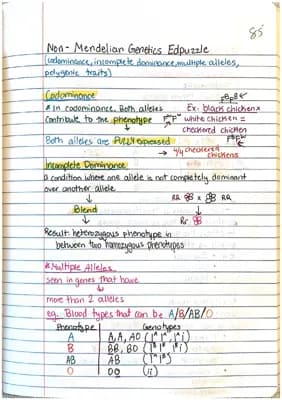 85
Non-Mendelian Genetics Edpuzzle
(codominance, incomplete dominance, multiple alleles,
polygenic traits)
Codominance
* In codominance, Both alleles
contribute to the phenotype
Ex: black chicken x
white chicken =
checkered chicken
Both alleles are FULLY expressed
→ 4/4 checkered
chickens
Incomplete Dominance
a condition where one allele is not completely dominant
over another allele
↓
Blend
↓
Result: heterozygous phenotype in
between two homozygous phenotypes
* Multiple Alleles
seen in genes that have
↓
more than 2 alleles
eg. Blood types that can be A/B/AB/O
Phenotype Genotypes
A A,A, AO (IᴬIᴬ, Iᴬi)
B BB, BO (IᴮIᴮ, Iᴮi)
AB AB (IᴬIᴮ)
O OO (ii)